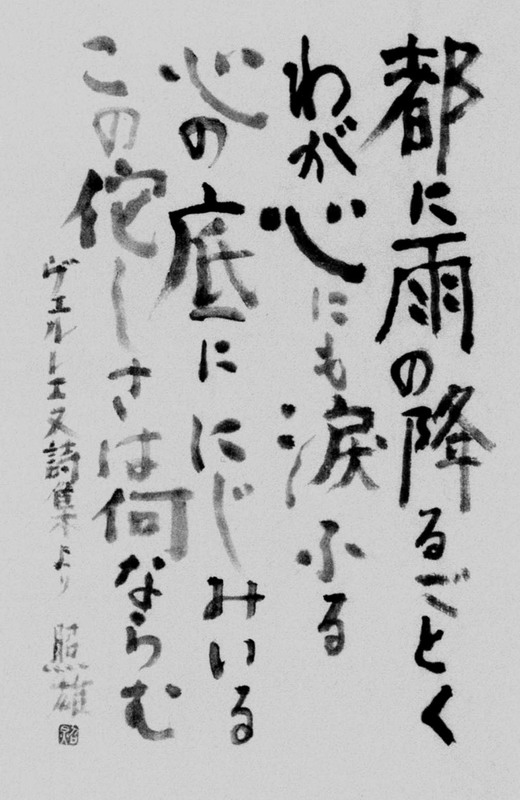 都に雨の降るごとく
わが心にも涙ふる
心の底ににじみいる
この侘しさは何ならむ
ヴェルレエヌ詩集より 照雄